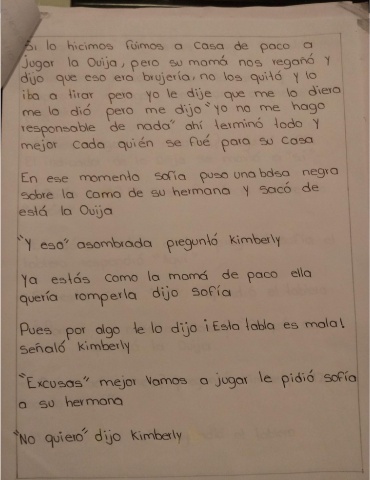 Si lo hicimos fuimos a casa de paco a
jugar la Ouija, pero su mamá nos regañó y
dijo que eso era brujería, no los quitó y lo
iba a tirar pero yo le dije que me lo diera
me lo dió pero me dijo "yo no me hago
responsable de nada" ahí terminó todo y
mejor cada quién se fué para su casa
En ese momento sofía puso una bolsa negra
sobre la cama de su hermana y sacó de
está la Ouija
"Y eso" asombrada preguntó kimberly
Ya estás como la mamá de paco ella
quería romperla dijo sofía
Pues por algo te lo dijo ¡Esta tabla es mala!
señaló kimberly
"Excusas" mejor vamos a jugar le pidió sofía
a su hermana
"No quiero" dijo kimberly